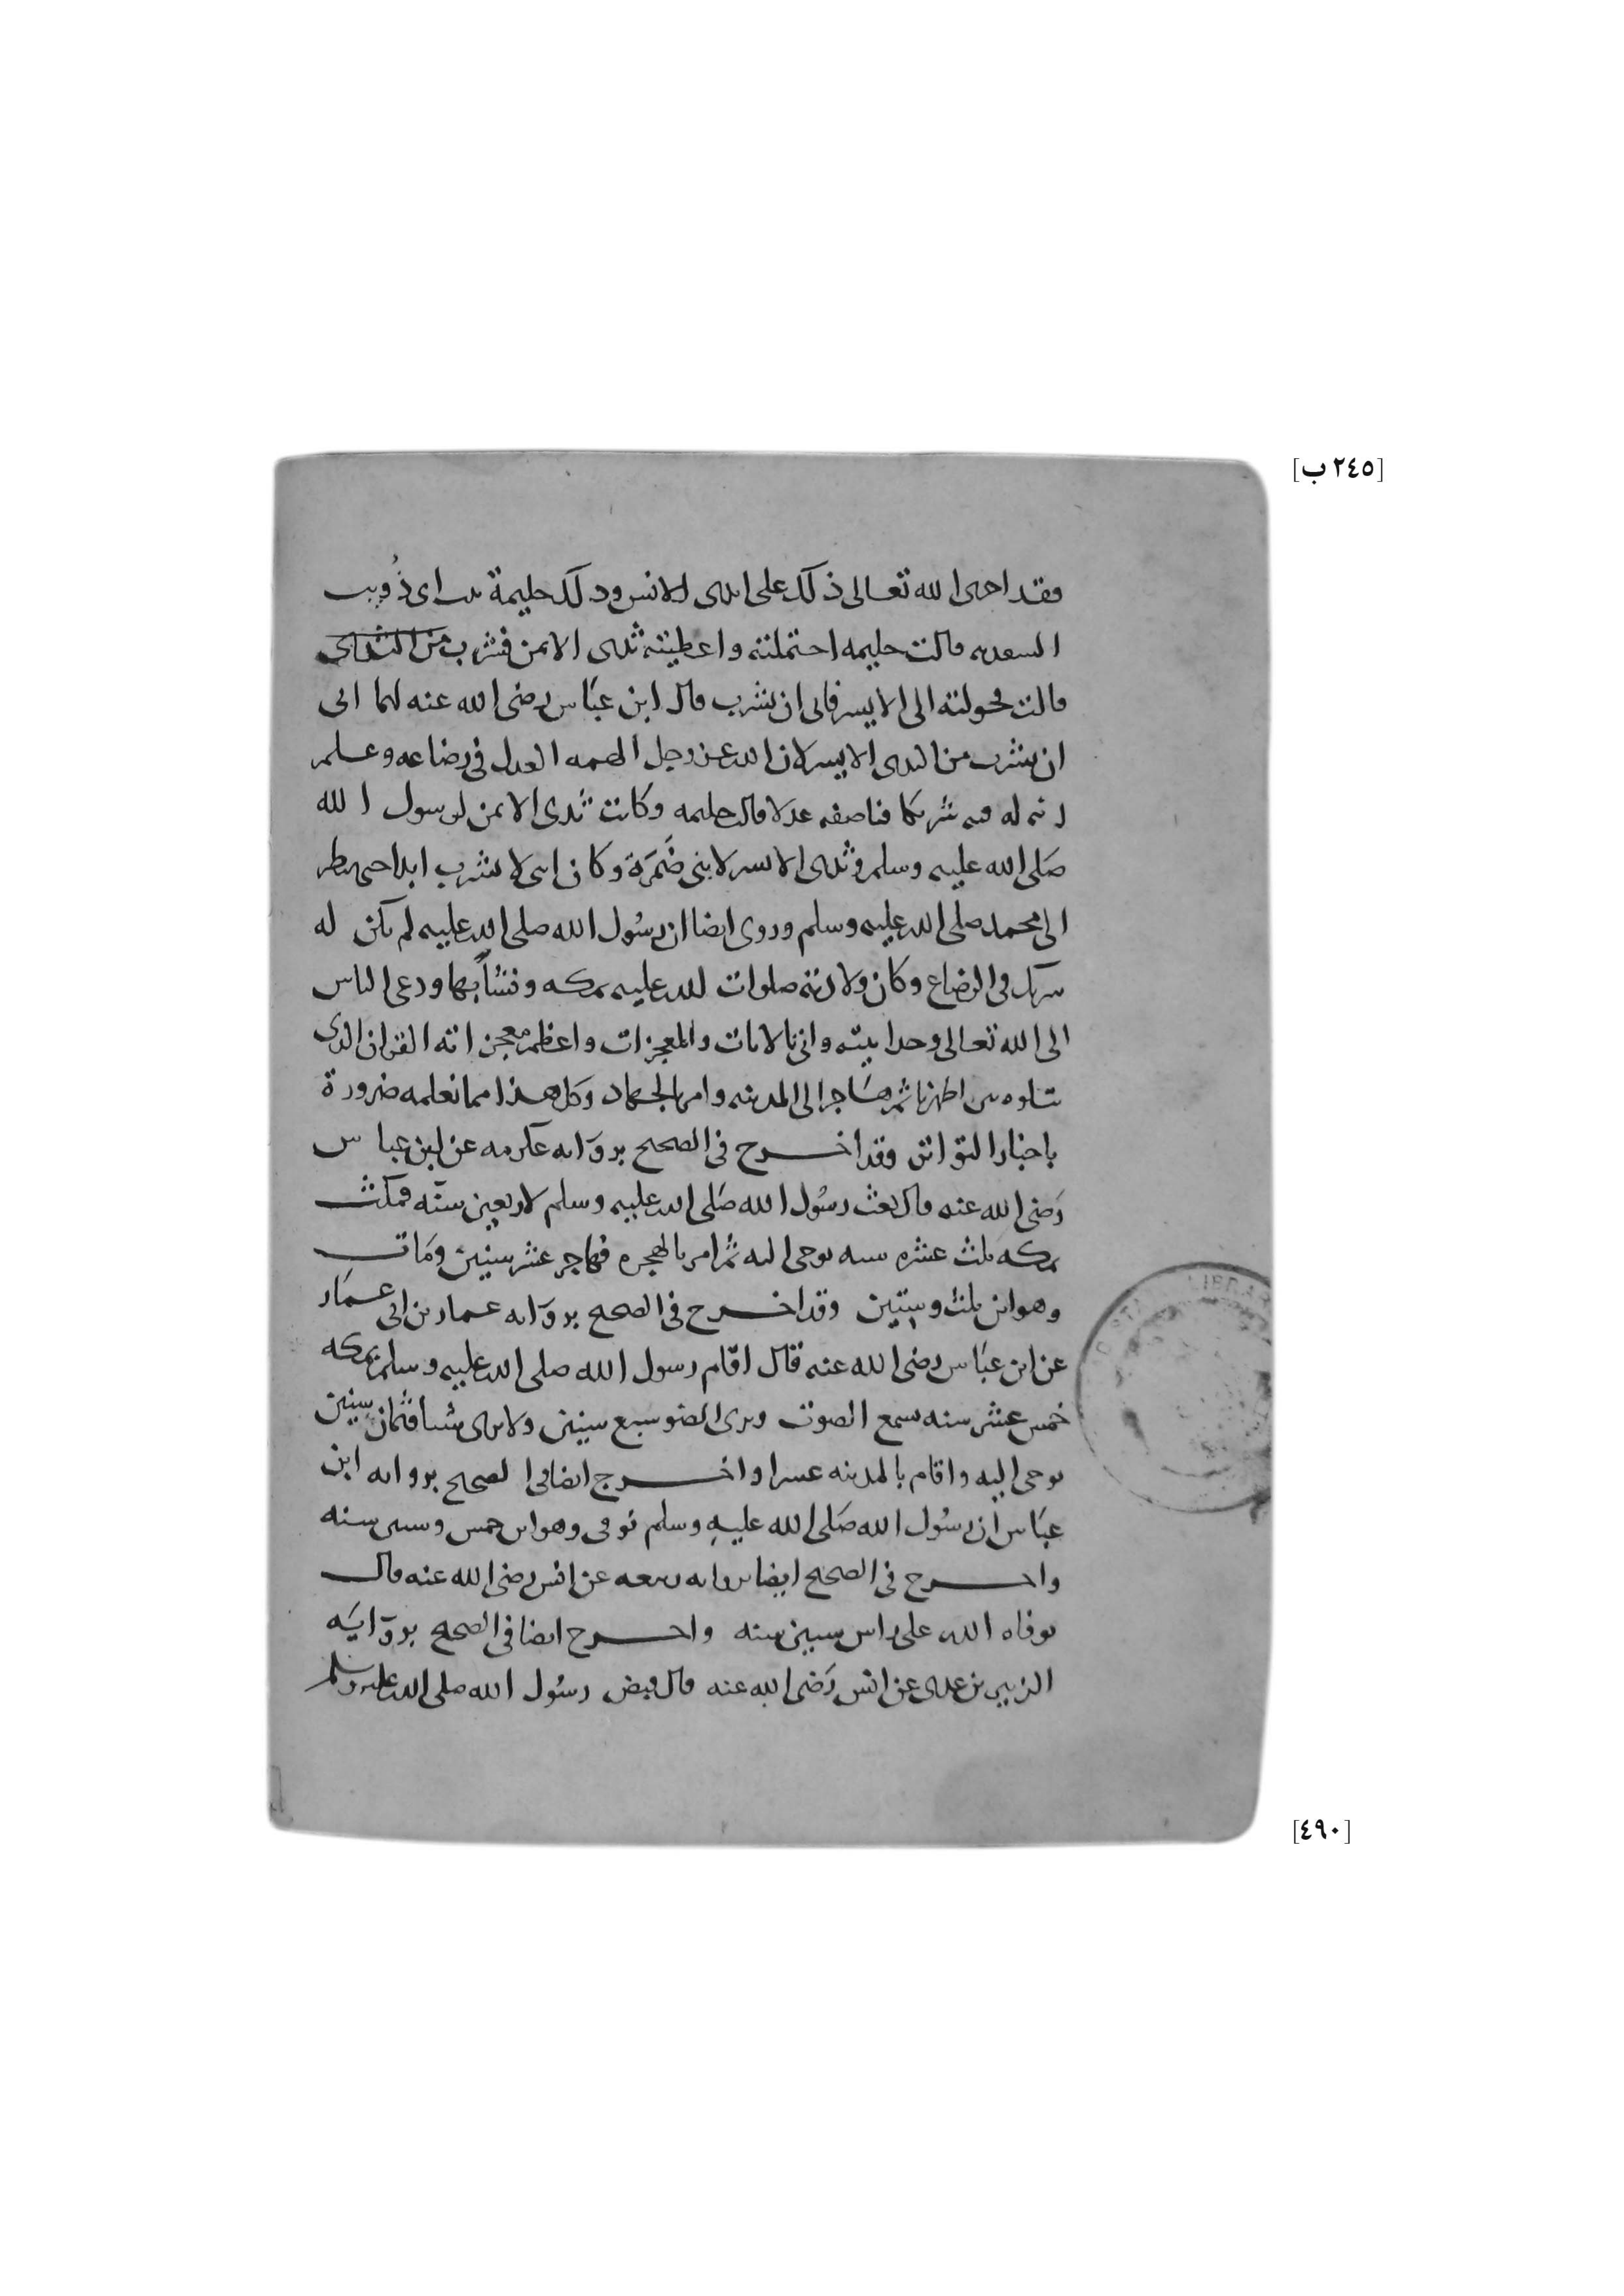 [٢٤٥ ب]
وقد اجرى الله تعالى ذلك على ايدى الانس وذلك حليمة بنت ابى ذُويب
السعديه قالت حليمه احتملته واعطيته ثدى الايمن فشرب من الثدى
قالت فحولته الى الايسر فابى ان يشرب قال ابن عبَاس رضى الله عنه انما ابى
ان يشرب من الثدى الايسر لان الله عز وجل الهمه العدل فى رضاعه وعلم
انه له فيه شريكا فناصفه عدلا قالت حليمه وكانت ثدى الايمن لرسول الله
صَلى الله عليه وسلم وثدى الايسر لابنى ضَمَرَة وكان ابنى لا يشرب ابدا حتى ينظر
الى محمد صلى الله عليه وسلم وروى ايضا ان رسُول الله صلى الله عليه لم يكن له
شريك فى الرضاع وكان ولادته صلوات الله عليه بمكه ونشأ بها ودعى الناس
الى الله تعالى وحدانيته واتى بالايات والمعجزات واعظم معجزاته القران الذى
نتلوه بين اظهرنا ثم هَاجر الى المدينه وامر بالجهاد وكل هذا مما نعلمه ضرورة
باخبار التواتر وقد اخرج فى الصحيح بروَايه عكرمه عن ابن عباس
رَضى الله عنه قال بعث رسُول الله صَلى الله عليه وسلم لاربعين سنَه فمكث
بمكه ثلث عشره سنه يوحى اليه ثم امر بالهجره فهاجر عشر سنين ومَات
وهو ابن ثلث وستين وقد اخرج فى الصحيح بروَايه عمار بن ابى عمَار
عن ابن عبَاس رضى الله عنه قال اقام رسول الله صلى الله عليه وسلم بمكه
خمس عشر سنه يسمع الصوت ويرى الضو سبع سنين ولا يرى شيا وثمان سنين
يوحى اليه واقام بالمدينه عشرا واخرج ايضا فى الصحيح بروايه ابن
عبَاس ان رسُول الله صَلى الله عليهِ وسلم توفى وهو ابن خمس وستين سنه
واخرج فى الصحيح ايضا بروايه ربيعه عن انس رضى الله عنه قال
توفاه الله على راس ستين سنه واخرج ايضا فى الصحيح بروَايَه
الزبير بن عدى عن انس رَضى الله عنه قال قبض رسُول الله صلى الله عليه وسلم
[٤٩٠]